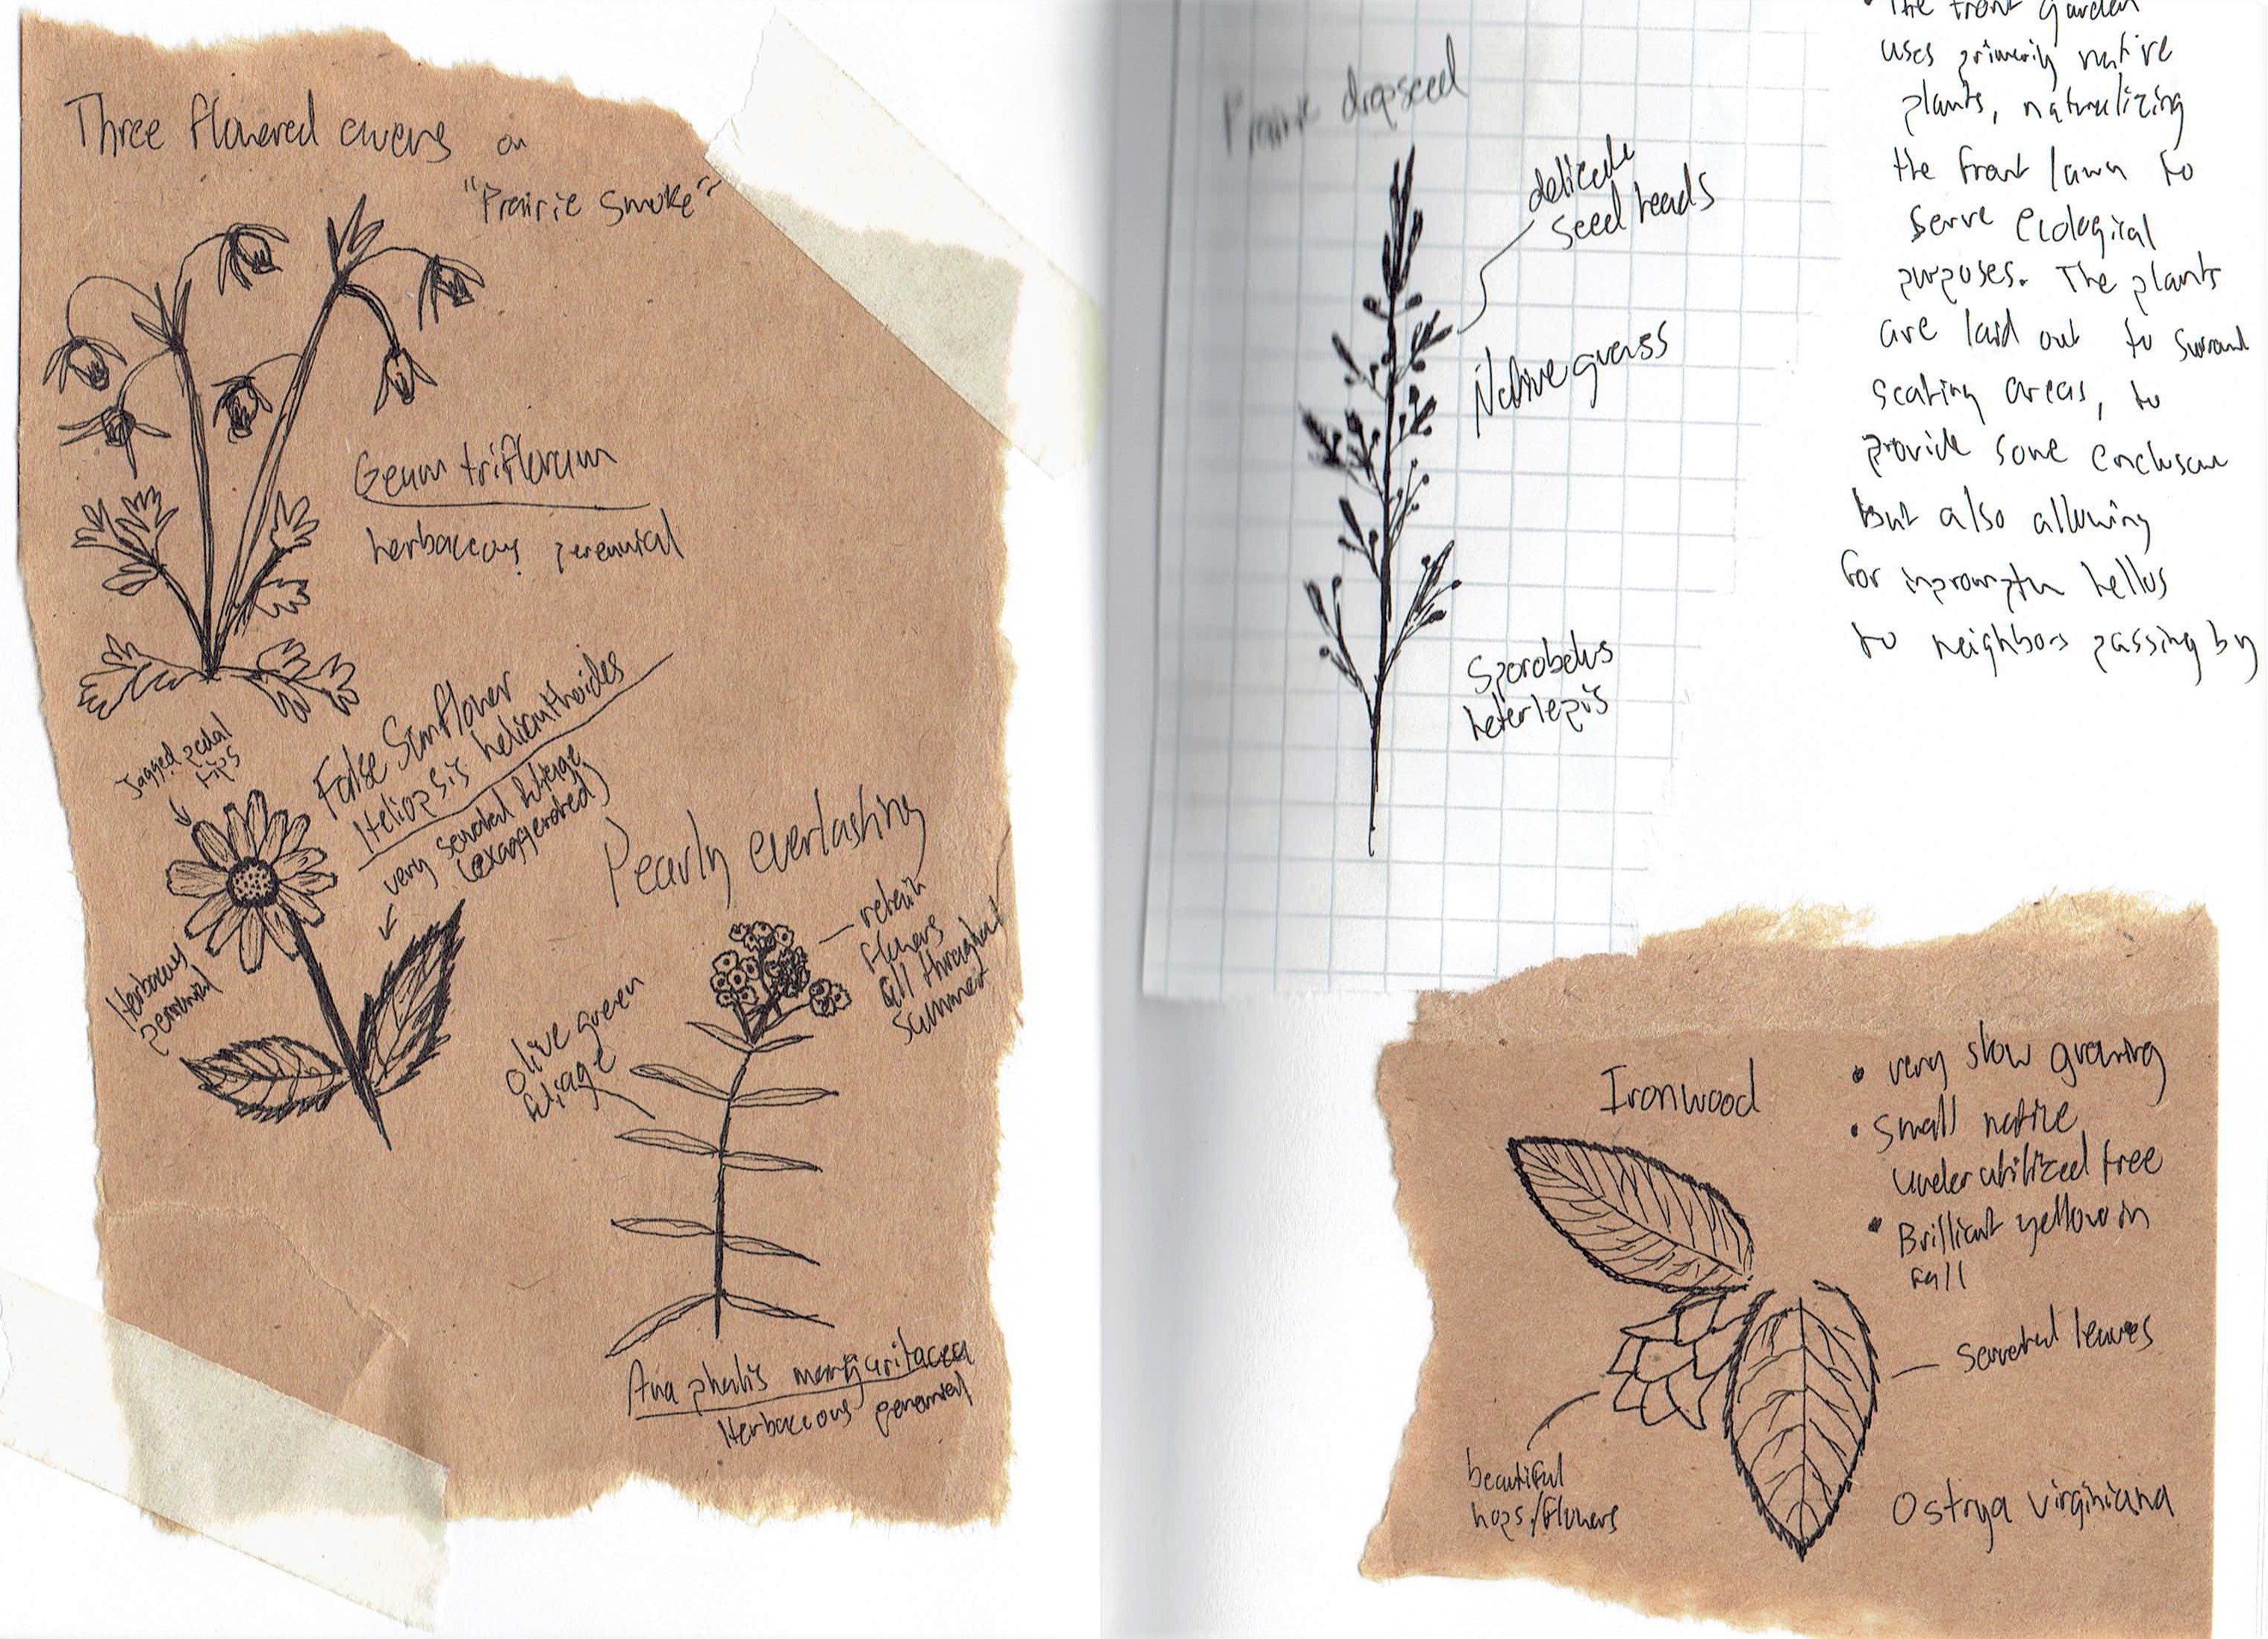 Three flowered avens or
"Prairie Smoke"
Geum triflorum
herbaceous perennial
False Sunflower
Heliopsis helianthoides
very serrated foliage
(exaggerated)
Jagged pedal
tips
Herbaceous
perennial
Pearly everlasting
retain
flowers
all throughout
summer
olive green
foliage
Anaphalis margaritacea
Herbaceous perennial
Prairie dropseed
delicate
seed heads
Native grass
Sporobolus
heterlepis
• The front garden
uses primarily native
plants, naturalizing
the front lawn to
serve ecological
purposes. The plants
are laid out to surround
seating areas, to
provide some enclosure
but also allowing
for inpromptu hellos
to neighbors passing by
Ironwood
• very slow growing
• Small native
underutilized tree
• Brilliant yellow in
fall
Serrated leaves
beautiful
hops/flowers
Ostrya virginiana